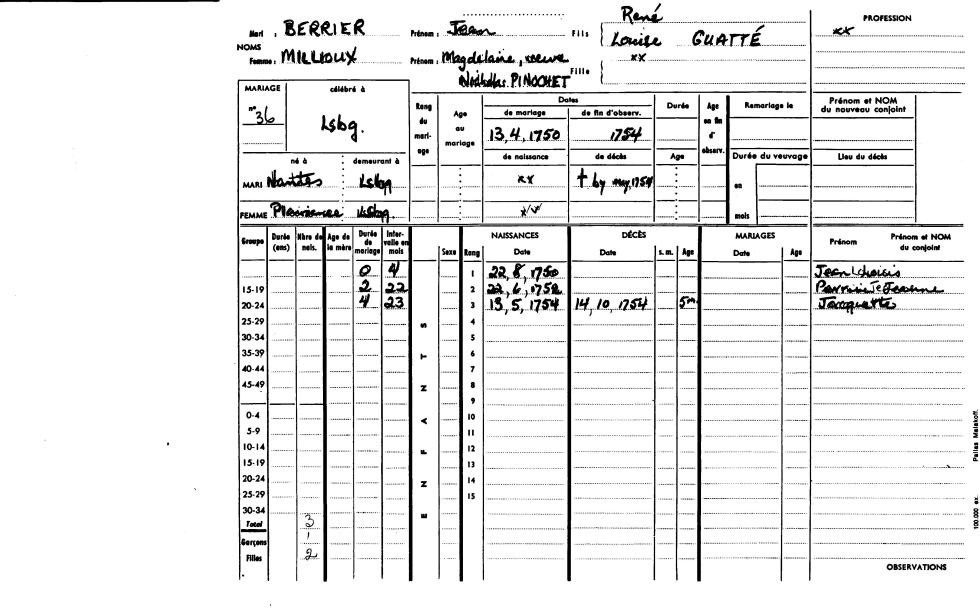 René
PROFESSION
Mari : BERRIER Prénom : Jean Fils Louise GUATTÉ xx
NOMS
Femme : MILLIOUX Prénom : Magdelaine, veuve Fille xx
Nicholas PINOCHET
MARIAGE célébré à
n° 36 Lsbg.
Rang du mari-age
Age au mariage
Dates
de mariage de fin d'observ.
13,4,1750 1754
de naissance de décès
Durée
Age
Age en fin d' observ.
Remariage le
Durée du veuvage
en
mois
Prénom et NOM du nouveau conjoint
Lieu du décès
né à demeurant à
MARI Nantes Lsbg xx † by may, 1754
FEMME Plaisance Lsbg. x/v
Groupe Durée (ans) Nbre de nais. Age de la mère Durée de mariage Inter-valle en mois
ENFANTS
Sexe Rang NAISSANCES Date DÉCÈS Date s. m. Age MARIAGES Date Age Prénom Prénom et NOM du conjoint
0 4 1 22,8,1750
15-19 2 22 2 22,6,1752 Jeanne
20-24 4 23 3 13,5,1754 14,10,1754 5m. Jacquette
25-29 4
30-34 5
35-39 6
40-44 7
45-49 8
9
0-4 10
5-9 11
10-14 12
15-19 13
20-24 14
25-29 15
30-34
Total 3
Garçons 1
Filles 2
OBSERVATIONS
100.000 ex. Pallas Malakoff.